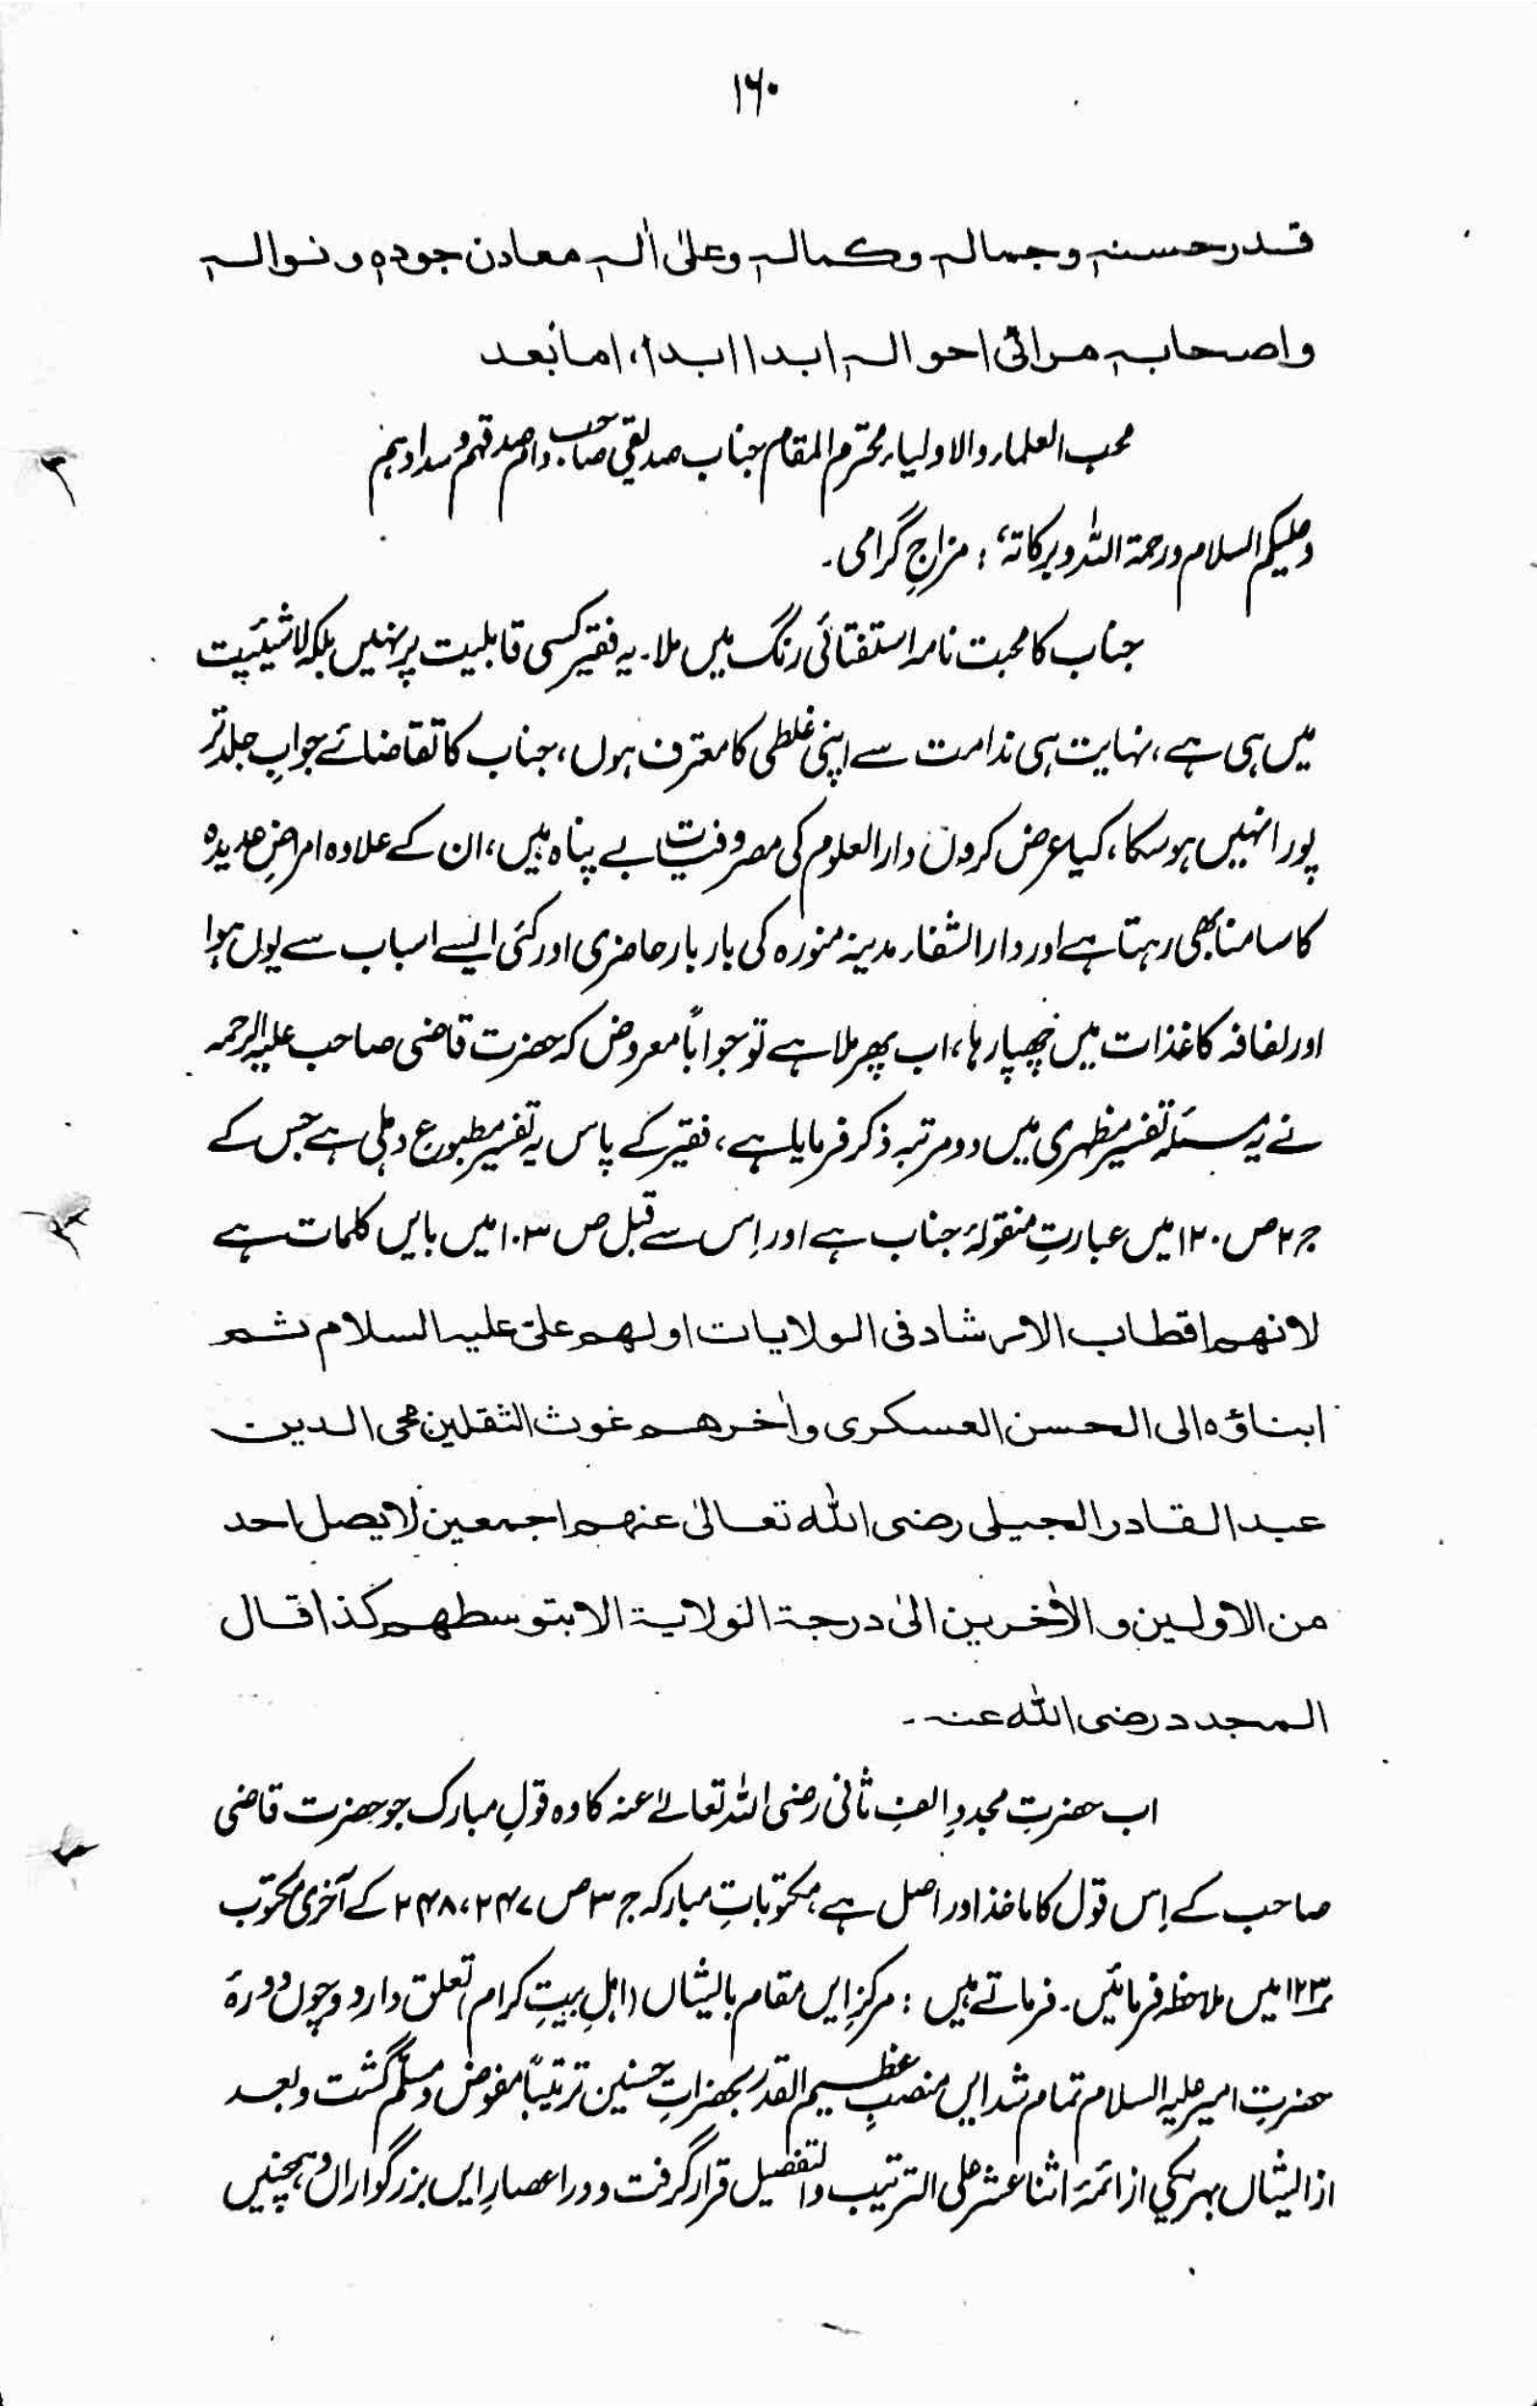 ۱۶۰
قدر حسنہ وجمالہ وکمالہ وعلیٰ اٰلہ معادن جودہ ونوالہ
واصحابہ مرائی احوالہ ابدا ابدا، اما بعد
محب العلماء والاولیاء محترم المقام جناب صدیقی صاحب دام صدقہم وسدادہم
وعلیکم السلام ورحمۃ اللہ وبرکاتہ، : مزاجِ گرامی۔
جناب کا محبت نامہ استفتائی رنگ میں ملا۔ یہ فقیر کسی قابلیت پر نہیں بلکہ لاشیئیت
میں ہی ہے، نہایت ہی ندامت سے اپنی غلطی کا معترف ہوں، جناب کا تقاضائے جوابِ جلد تر
پورا نہیں ہو سکا، کیا عرض کروں دارالعلوم کی مصروفیت بے پناہ ہیں، ان کے علاوہ امراضِ عدیدہ
کا سامنا بھی رہتا ہے اور دارالشفاء مدینہ منورہ کی بار بار حاضری اور کئی ایسے اسباب سے یوں ہوا
اور لفافہ کاغذات میں چھپا رہا، اب پھر ملا ہے تو جواباً معروض کہ حضرت قاضی صاحب علیہ الرحمہ
نے یہ مسئلہ تفسیر مظہری میں دو مرتبہ ذکر فرمایا ہے، فقیر کے پاس یہ تفسیر مطبوع دہلی ہے جس کے
ج ۲ ص ۱۲۰ میں عبارتِ منقولۂ جناب ہے اور اِس سے قبل ص ۱۰۳ میں بایں کلمات ہے
لانهم اقطاب الارشاد فی الولایات اولهم علی علیہ السلام ثم
ابناؤہ الی الحسن العسکری واٰخرهم غوث الثقلین محی الدین
عبد القادر الجیلی رضی اللہ تعالیٰ عنهم اجمعین لا یصل احد
من الاولین والاٰخرین الیٰ درجۃ الولایۃ الا بتوسطهم کذا قال
المجدد رضی اللہ عنہ۔
اب حضرتِ مجددِ الفِ ثانی رضی اللہ تعالےٰ عنہ کا وہ قولِ مبارک جو حضرت قاضی
صاحب کے اِس قول کا ماخذ اور اصل ہے، مکتوباتِ مبارکہ ج ۳ ص ۲۴۷، ۲۴۸ کے آخری مکتوب
نمبر ۱۲۳ میں ملاحظہ فرمائیں۔ فرماتے ہیں : مرکزِ ایں مقام بایشاں (اہلِ بیتِ کرام) تعلق دارد وچوں دورۂ
حضرتِ امیر علیہ السلام تمام شد ایں منصبِ عظیم القدر بحضراتِ حسنین ترتیباً مفوض ومسلّم گشت وبعد
از ایشاں بہر یکی از ائمۂ اثنا عشر علی الترتیب والتفصیل قرار گرفت ودر اعصارِ ایں بزرگواراں وہمچنیں